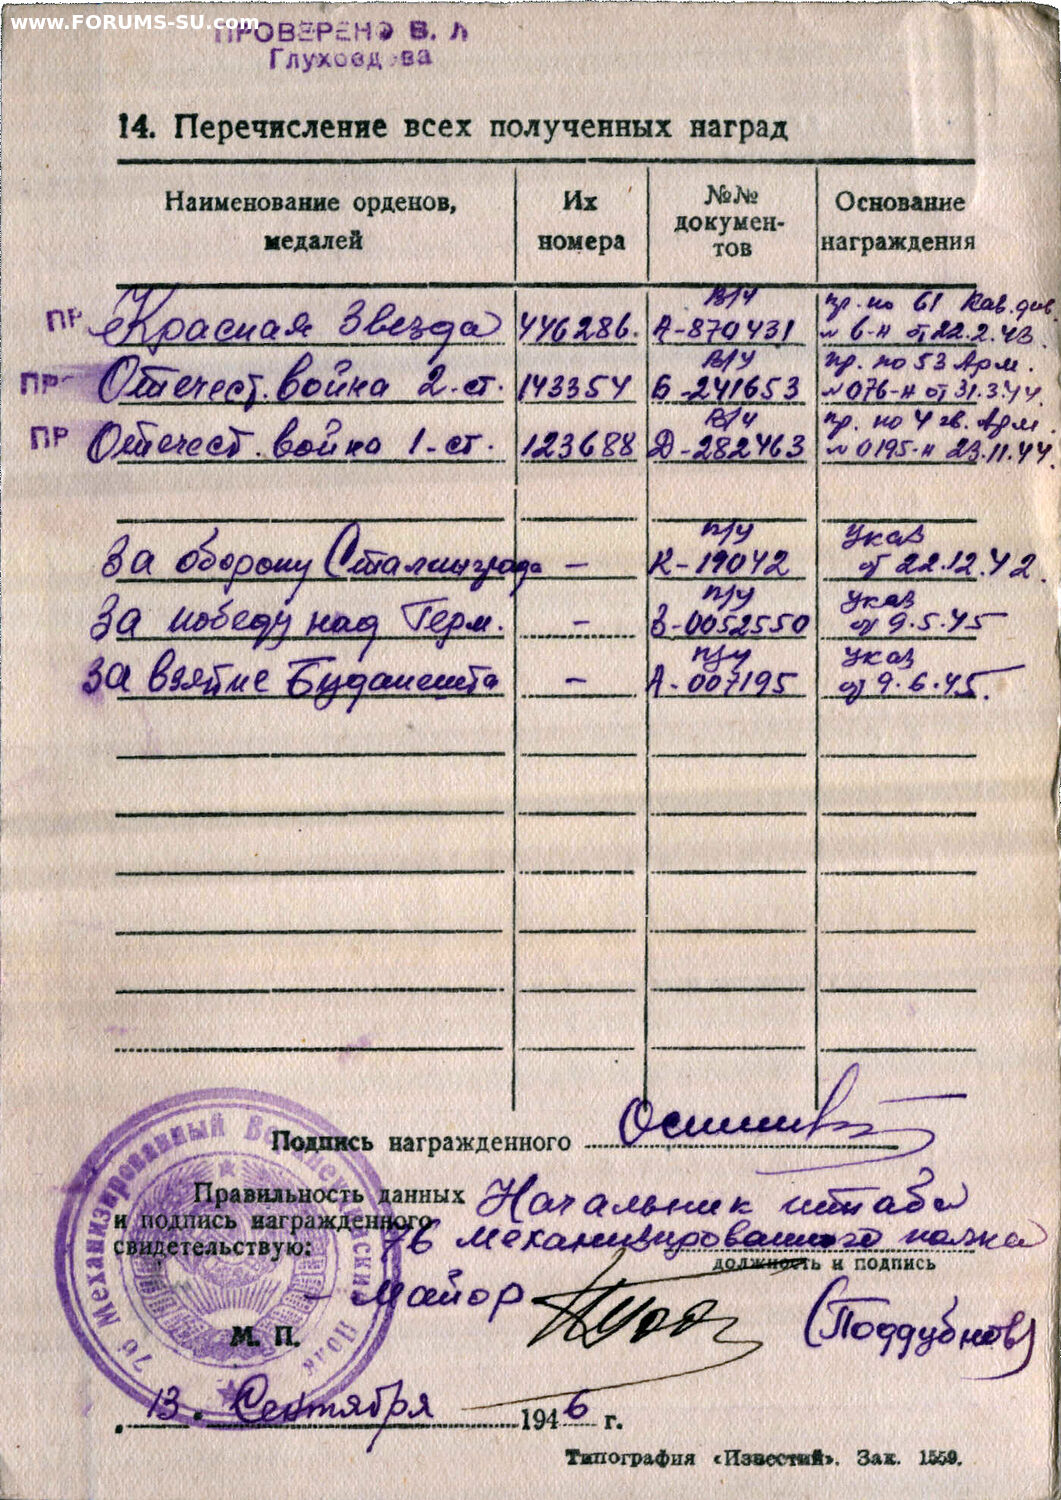 www.FORUMS-SU.com
ПРОВЕРЕНО В. Л
Глуховдова
14. Перечисление всех полученных наград
Наименование орденов, медалей
Их номера
№№ документов
Основание награждения
ПР Красная Звезда 446286. в/ч А-870431 пр. по 61 Кав. див. № 6-н от 22.2.43.
ПР Отечест. война 2-ст. 143354 в/ч Б-241653 пр. по 53 Арм. № 076-н от 31.3.44.
ПР Отечест. война 1-ст. 123688 в/ч Д-282463 пр. по 4 гв. Арм. № 0195-н 23.11.44.
За оборону Сталинграда – п/у К-19042 указ от 22.12.42.
За победу над Герм. – п/у З-0052550 указ от 9.5.45
За взятие Будапешта – п/у А-007195 указ от 9.6.45.
Подпись награжденного
Правильность данных
и подпись награжденного
свидетельствую:
Начальник штаба
76 механизированного полка
должность и подпись
майор (Поддубнов)
М. П.
76 Механизированный Венский Полк
13 Сентября 1946 г.
Типография «Известий». Зак. 1559.